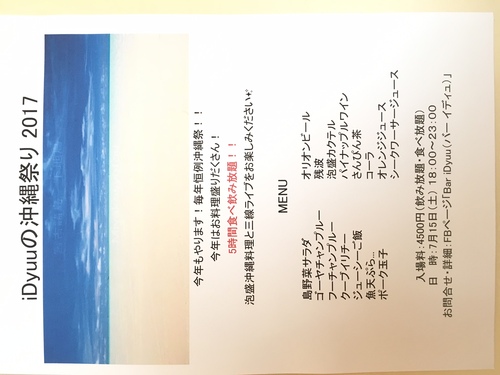 iDyuuの沖縄祭り 2017
今年もやります！毎年恒例沖縄祭！！
今年はお料理盛りだくさん！
5時間食べ飲み放題！！
泡盛沖縄料理と三線ライブをお楽しみください
MENU
島野菜サラダ
ゴーヤチャンプルー
フーチャンプルー
クーブイリチー
ジューシーご飯
魚天ぷら...
ポーク玉子
オリオンビール
残波
泡盛カクテル
パイナップルワイン
さんぴん茶
コーラ
オレンジジュース
シークワーサージュース
入場料：4500円（飲み放題・食べ放題）
日　時：7月15日（土）18：00～23：00
お問合せ・詳細：FBページ「Bar iDyuu（バー イデュ）」